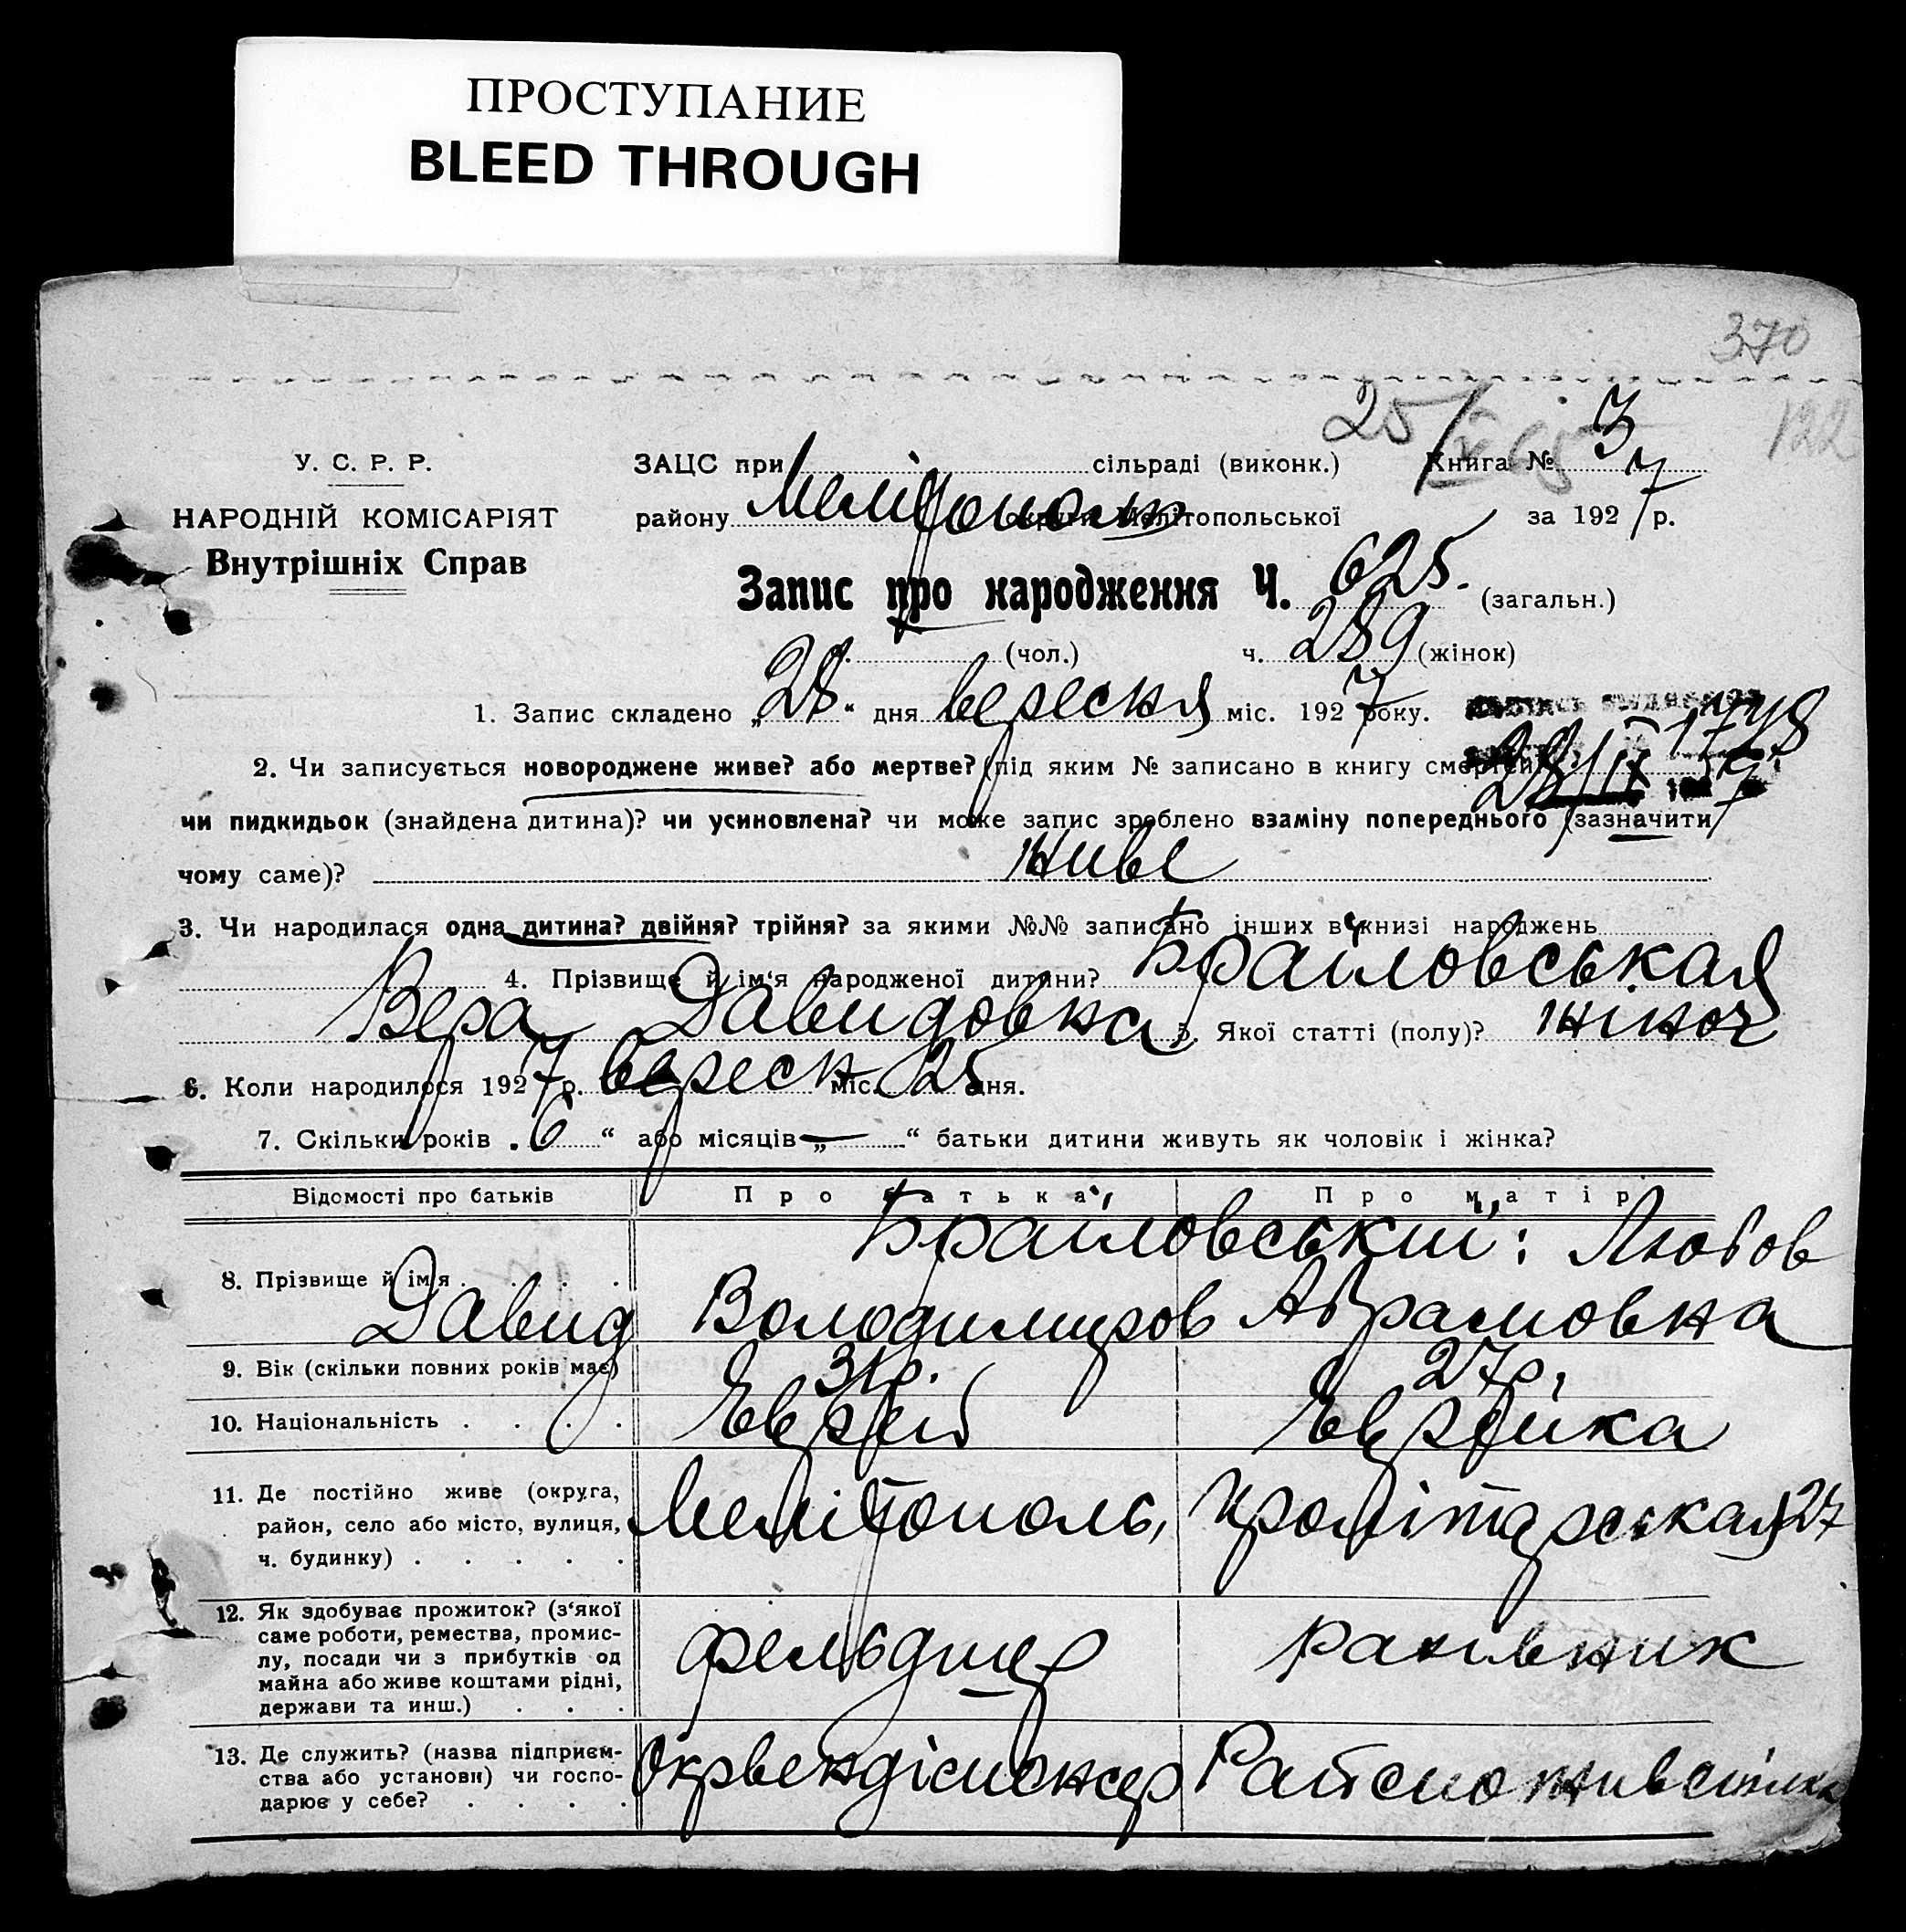 ПРОСТУПАНИЕ
BLEED THROUGH
370
25/
122
У. С. Р. Р.
НАРОДНІЙ КОМІСАРІЯТ
Внутрішніх Справ
ЗАЦС при сільраді (виконк.) Книга № 3
району Мелітополь округи Мелітопольської за 1927 р.
Запис про народження Ч. 625. (загальн.)
ч. (чол.) ч. 289 (жінок)
1. Запис складено „28“ дня вересня міс. 1927 року.
1748
28/IX 7
2. Чи записується новороджене живе? або мертве? (під яким № записано в книгу смертей)
чи пидкидьок (знайдена дитина)? чи усиновлена? чи може запис зроблено взаміну попереднього (зазначити
чому саме)? живе
3. Чи народилася одна дитина? двійня? трійня? за якими №№ записано інших в книзі народжень
4. Прізвище й ім‘я народженої дитини? Браіловськая
Вера Давидовна 5. Якої статті (полу)? жіноч
6. Коли народилося 1927 р. вересн міс. 25 дня.
7. Скільки років „6“ або місяців „—“ батьки дитини живуть як чоловік і жінка?
Відомості про батьків Про батька Про матір
8. Прізвище й ім‘я . . . . Браіловський: Любов
Давид Володимиров Абрамовна
9. Вік (скільки повних років має) 31р. 27р.
10. Національність . . . . Еврей Еврейка
11. Де постійно живе (округа,
район, село або місто, вулиця,
ч. будинку) . . . . . Мелітополь, Пролітарськая 27
12. Як здобуває прожиток? (з‘якої
саме роботи, ремества, промис-
лу, посади чи з прибутків од
майна або живе коштами рідні,
держави та инш.) . . . фельдшер
13. Де служить? (назва підприєм-
ства або установи) чи госпо-
дарює у себе? . . . . Окрвендіспонсер